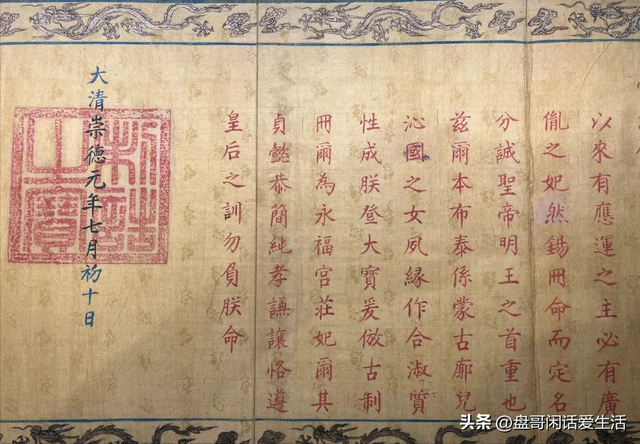 以來有應運之主必有廣
胤之妃然錫冊命而定名
分誠聖帝明王之首重也
茲爾本布泰係蒙古廓兒
沁國之女夙緣作合淑質
性成朕登大寶爰倣古制
冊爾為永福宮莊妃爾其
貞懿恭簡純孝謙讓恪遵
皇后之訓勿負朕命
大清崇德元年七月初十日
制誥之寶
头条 @盘哥闲话爱生活